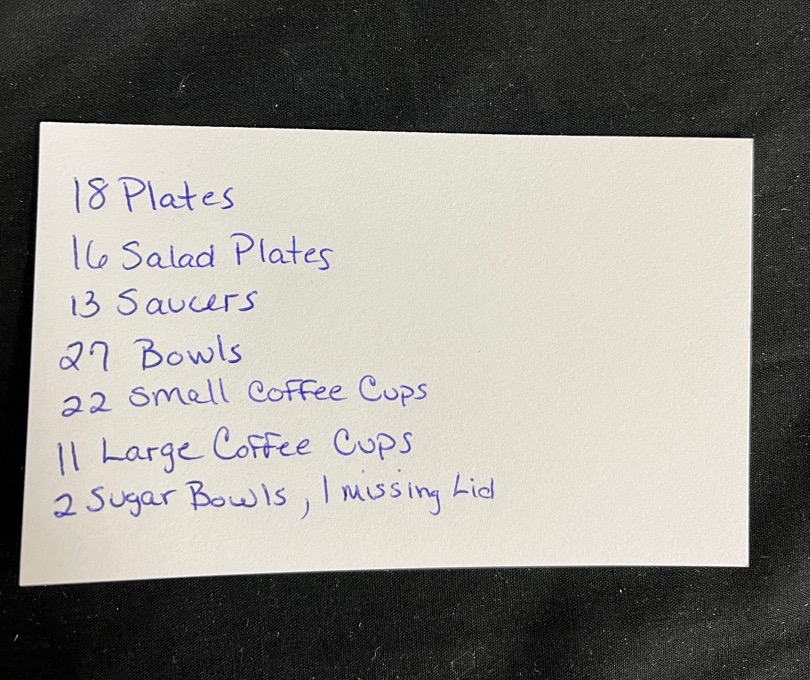 18 Plates
16 Salad Plates
13 Saucers
27 Bowls
22 Small Coffee Cups
11 Large Coffee Cups
2 Sugar Bowls, 1 missing Lid